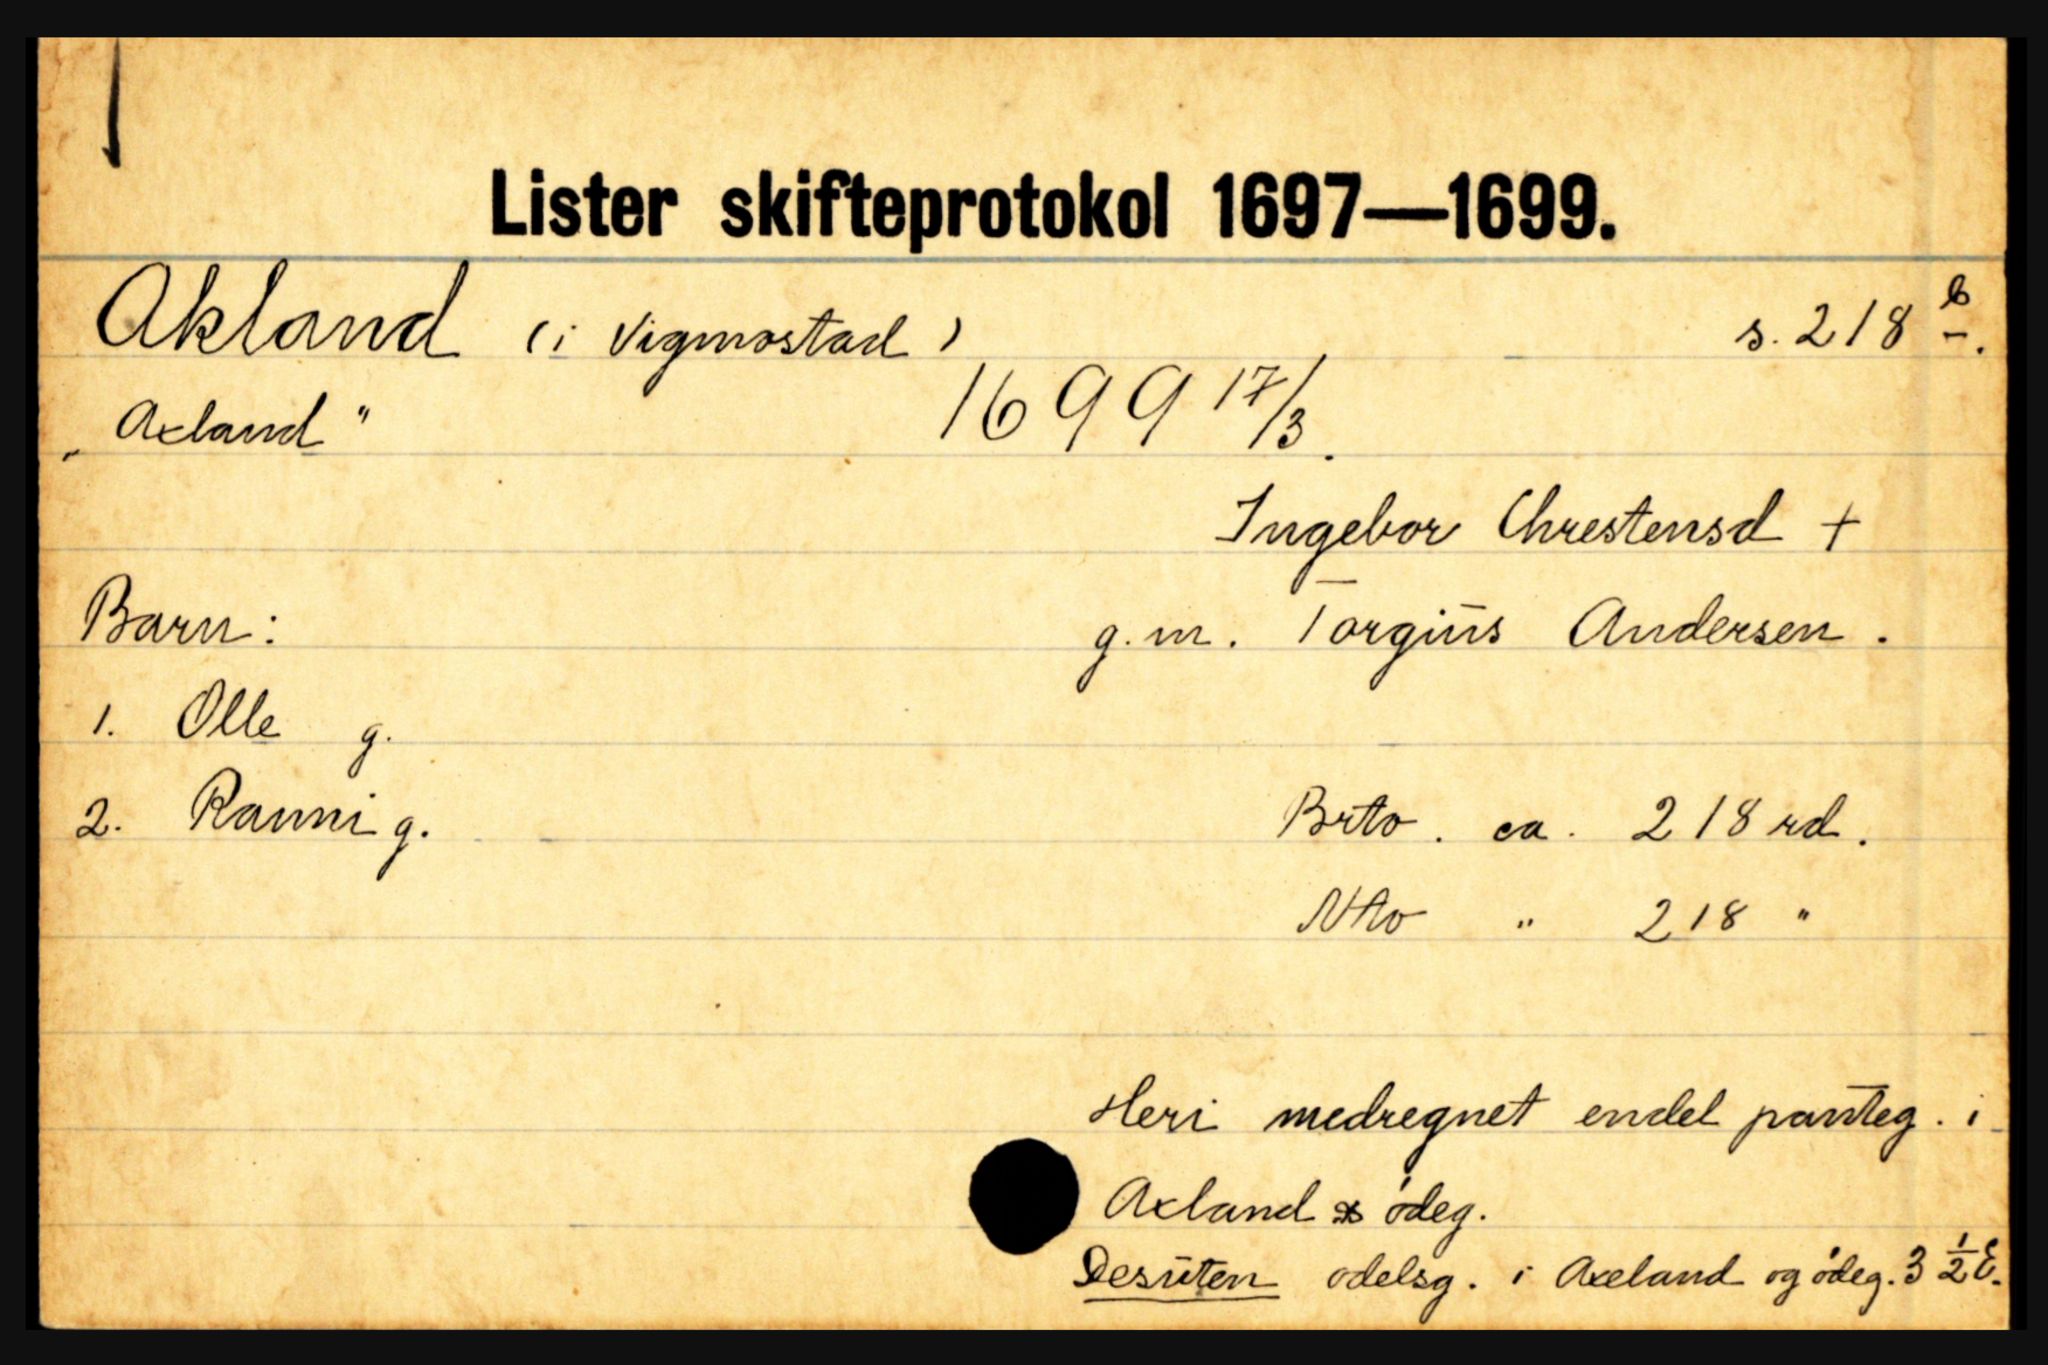 Lister skifteprotokol 1697—1699.
Akland (i Vigmostad) s. 218 b.
"Axland" 1699 17/3.
Ingebor Chrestensd +
Barn: g.m. Torgius Andersen.
1. Olle g.
2. Ranni g. Brto. ca. 218 rd.
Nto " 218 "
Heri medregnet endel panteg. i
Axland ødeg.
Desuten odelsg. i Axeland og ødeg. 3 1/2 E.